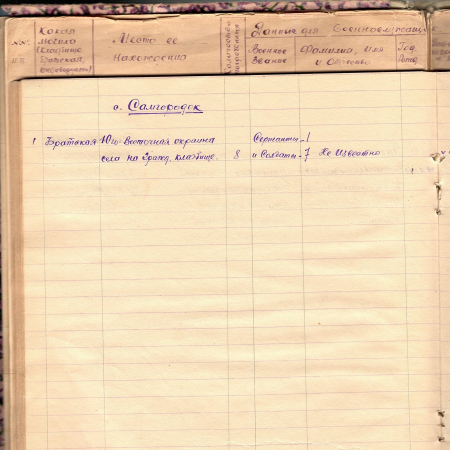 №№
пп
Какая
могила
кладбище
братская,
Место ее
нахождения
Количество
Данные для Военнослужащ
Военное
Звание
Фамилия, имя
и Отчество
Год
рожд.
с. Самгородок
1 Братская Юго-Восточная окраина
села на гражд. кладбище. 8
Сержанты - 1
и Солдаты - 7 Не известно